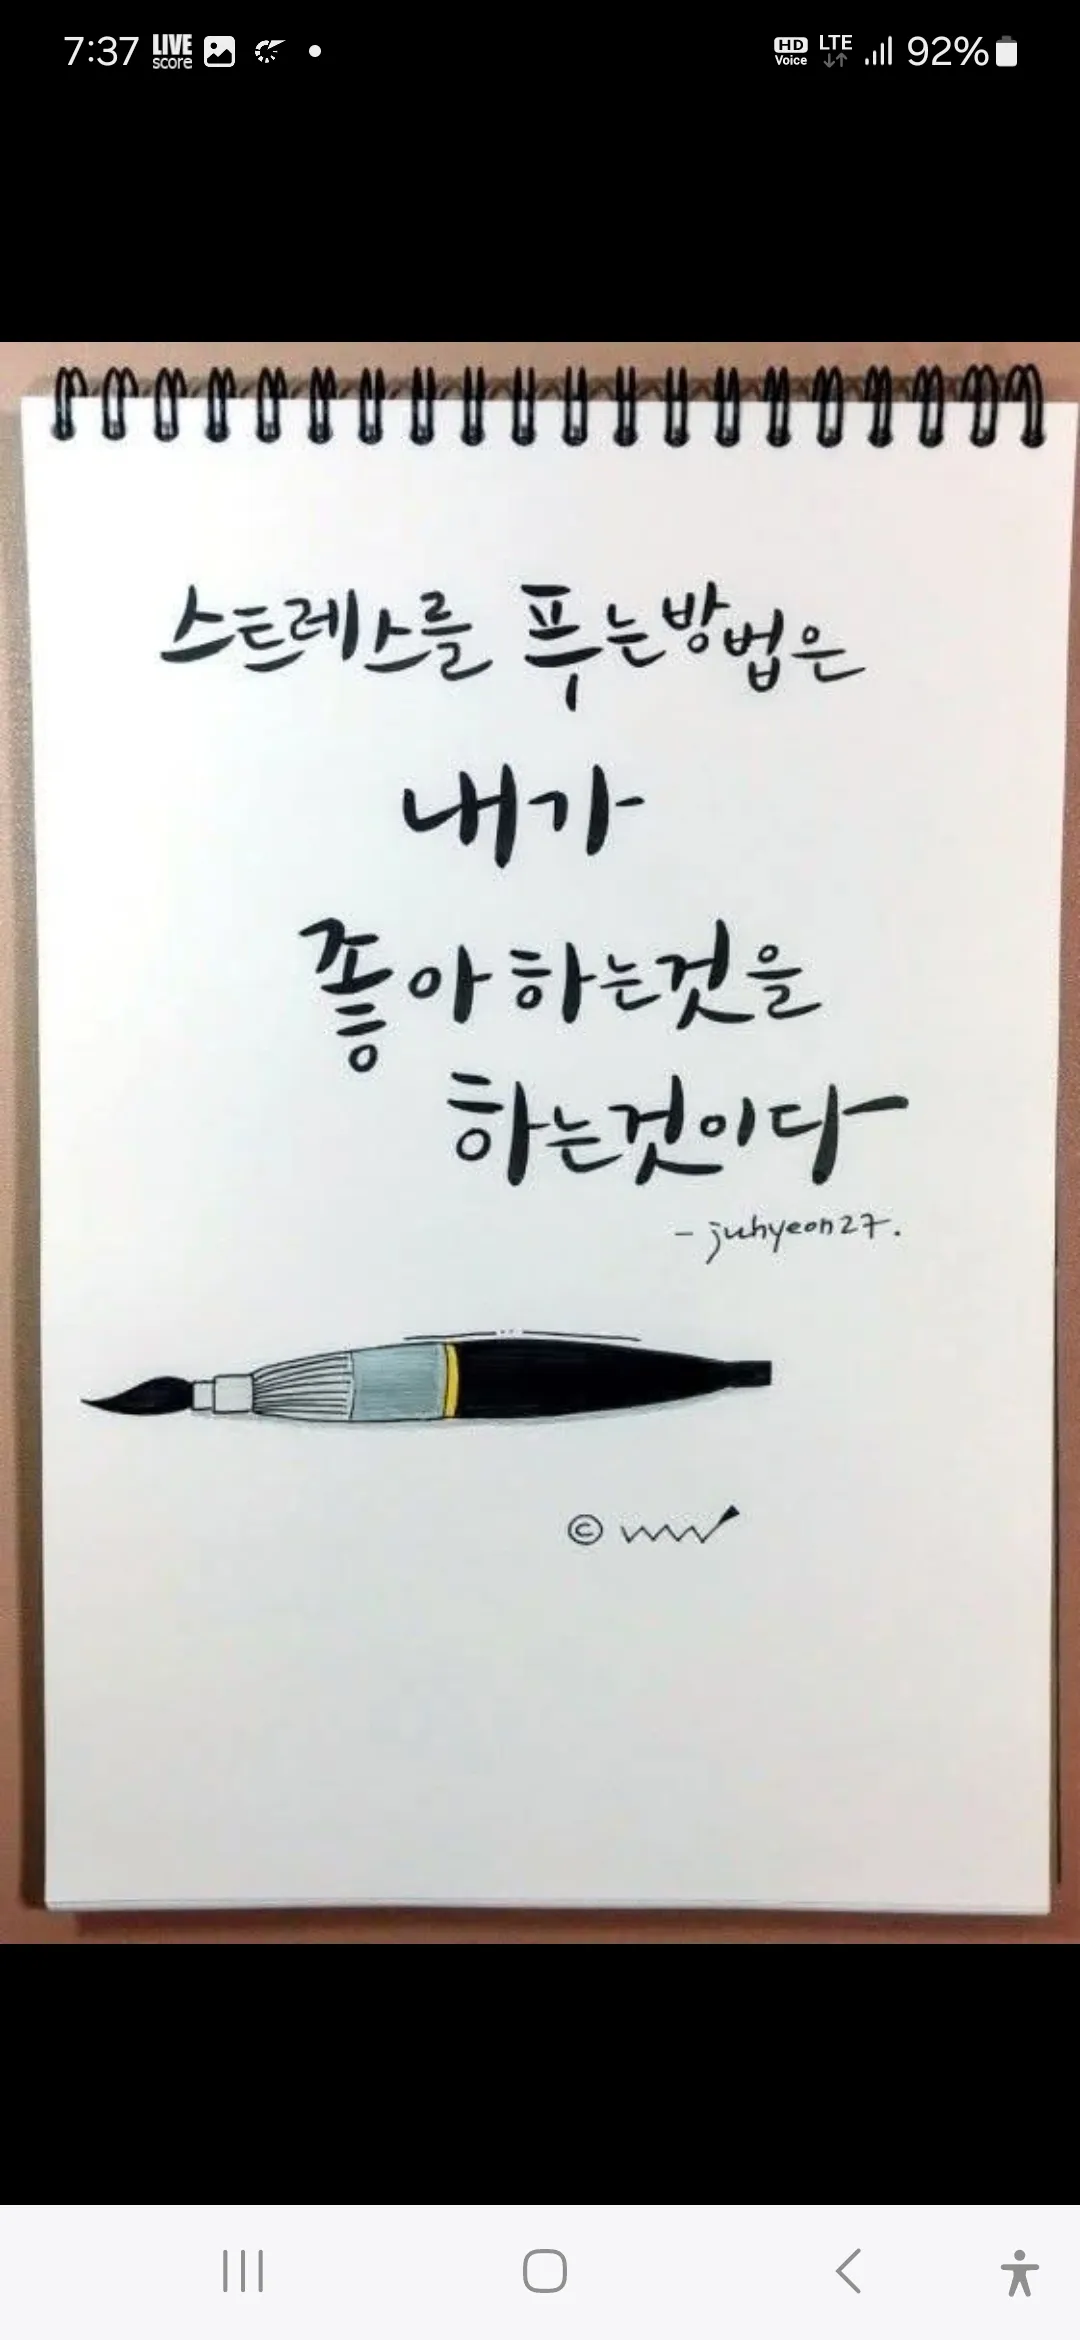 7:37 LIVE score HD Voice LTE 92%
스트레스를 푸는방법은
내가
좋아하는것을
하는것이다
- juhyeon27.
©